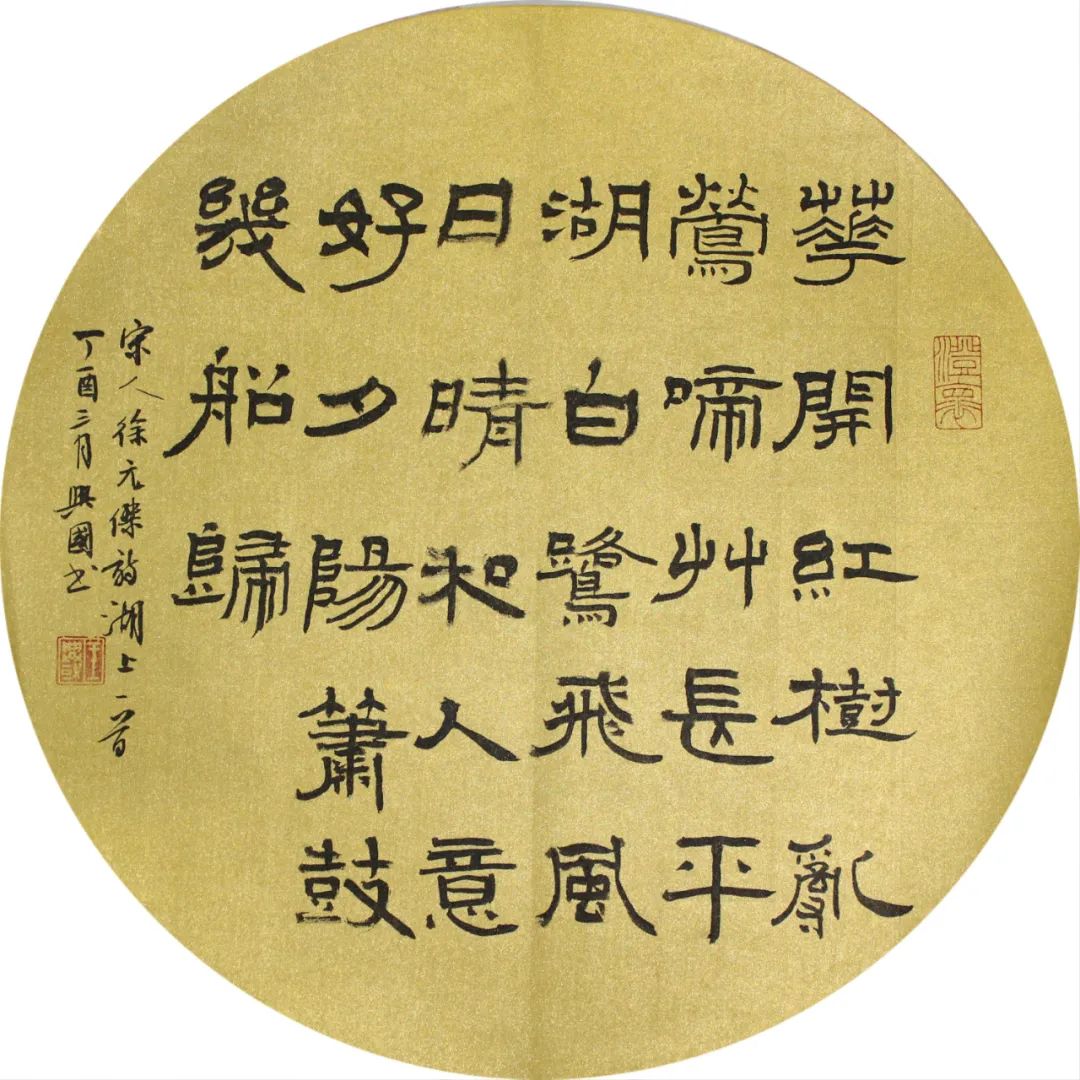 華開紅樹亂
鶯啼艸長平
湖白鷺飛風
日晴和人意
好夕陽蕭鼓
幾船歸
宋人徐元傑詩湖上一首
丁酉三月興國书